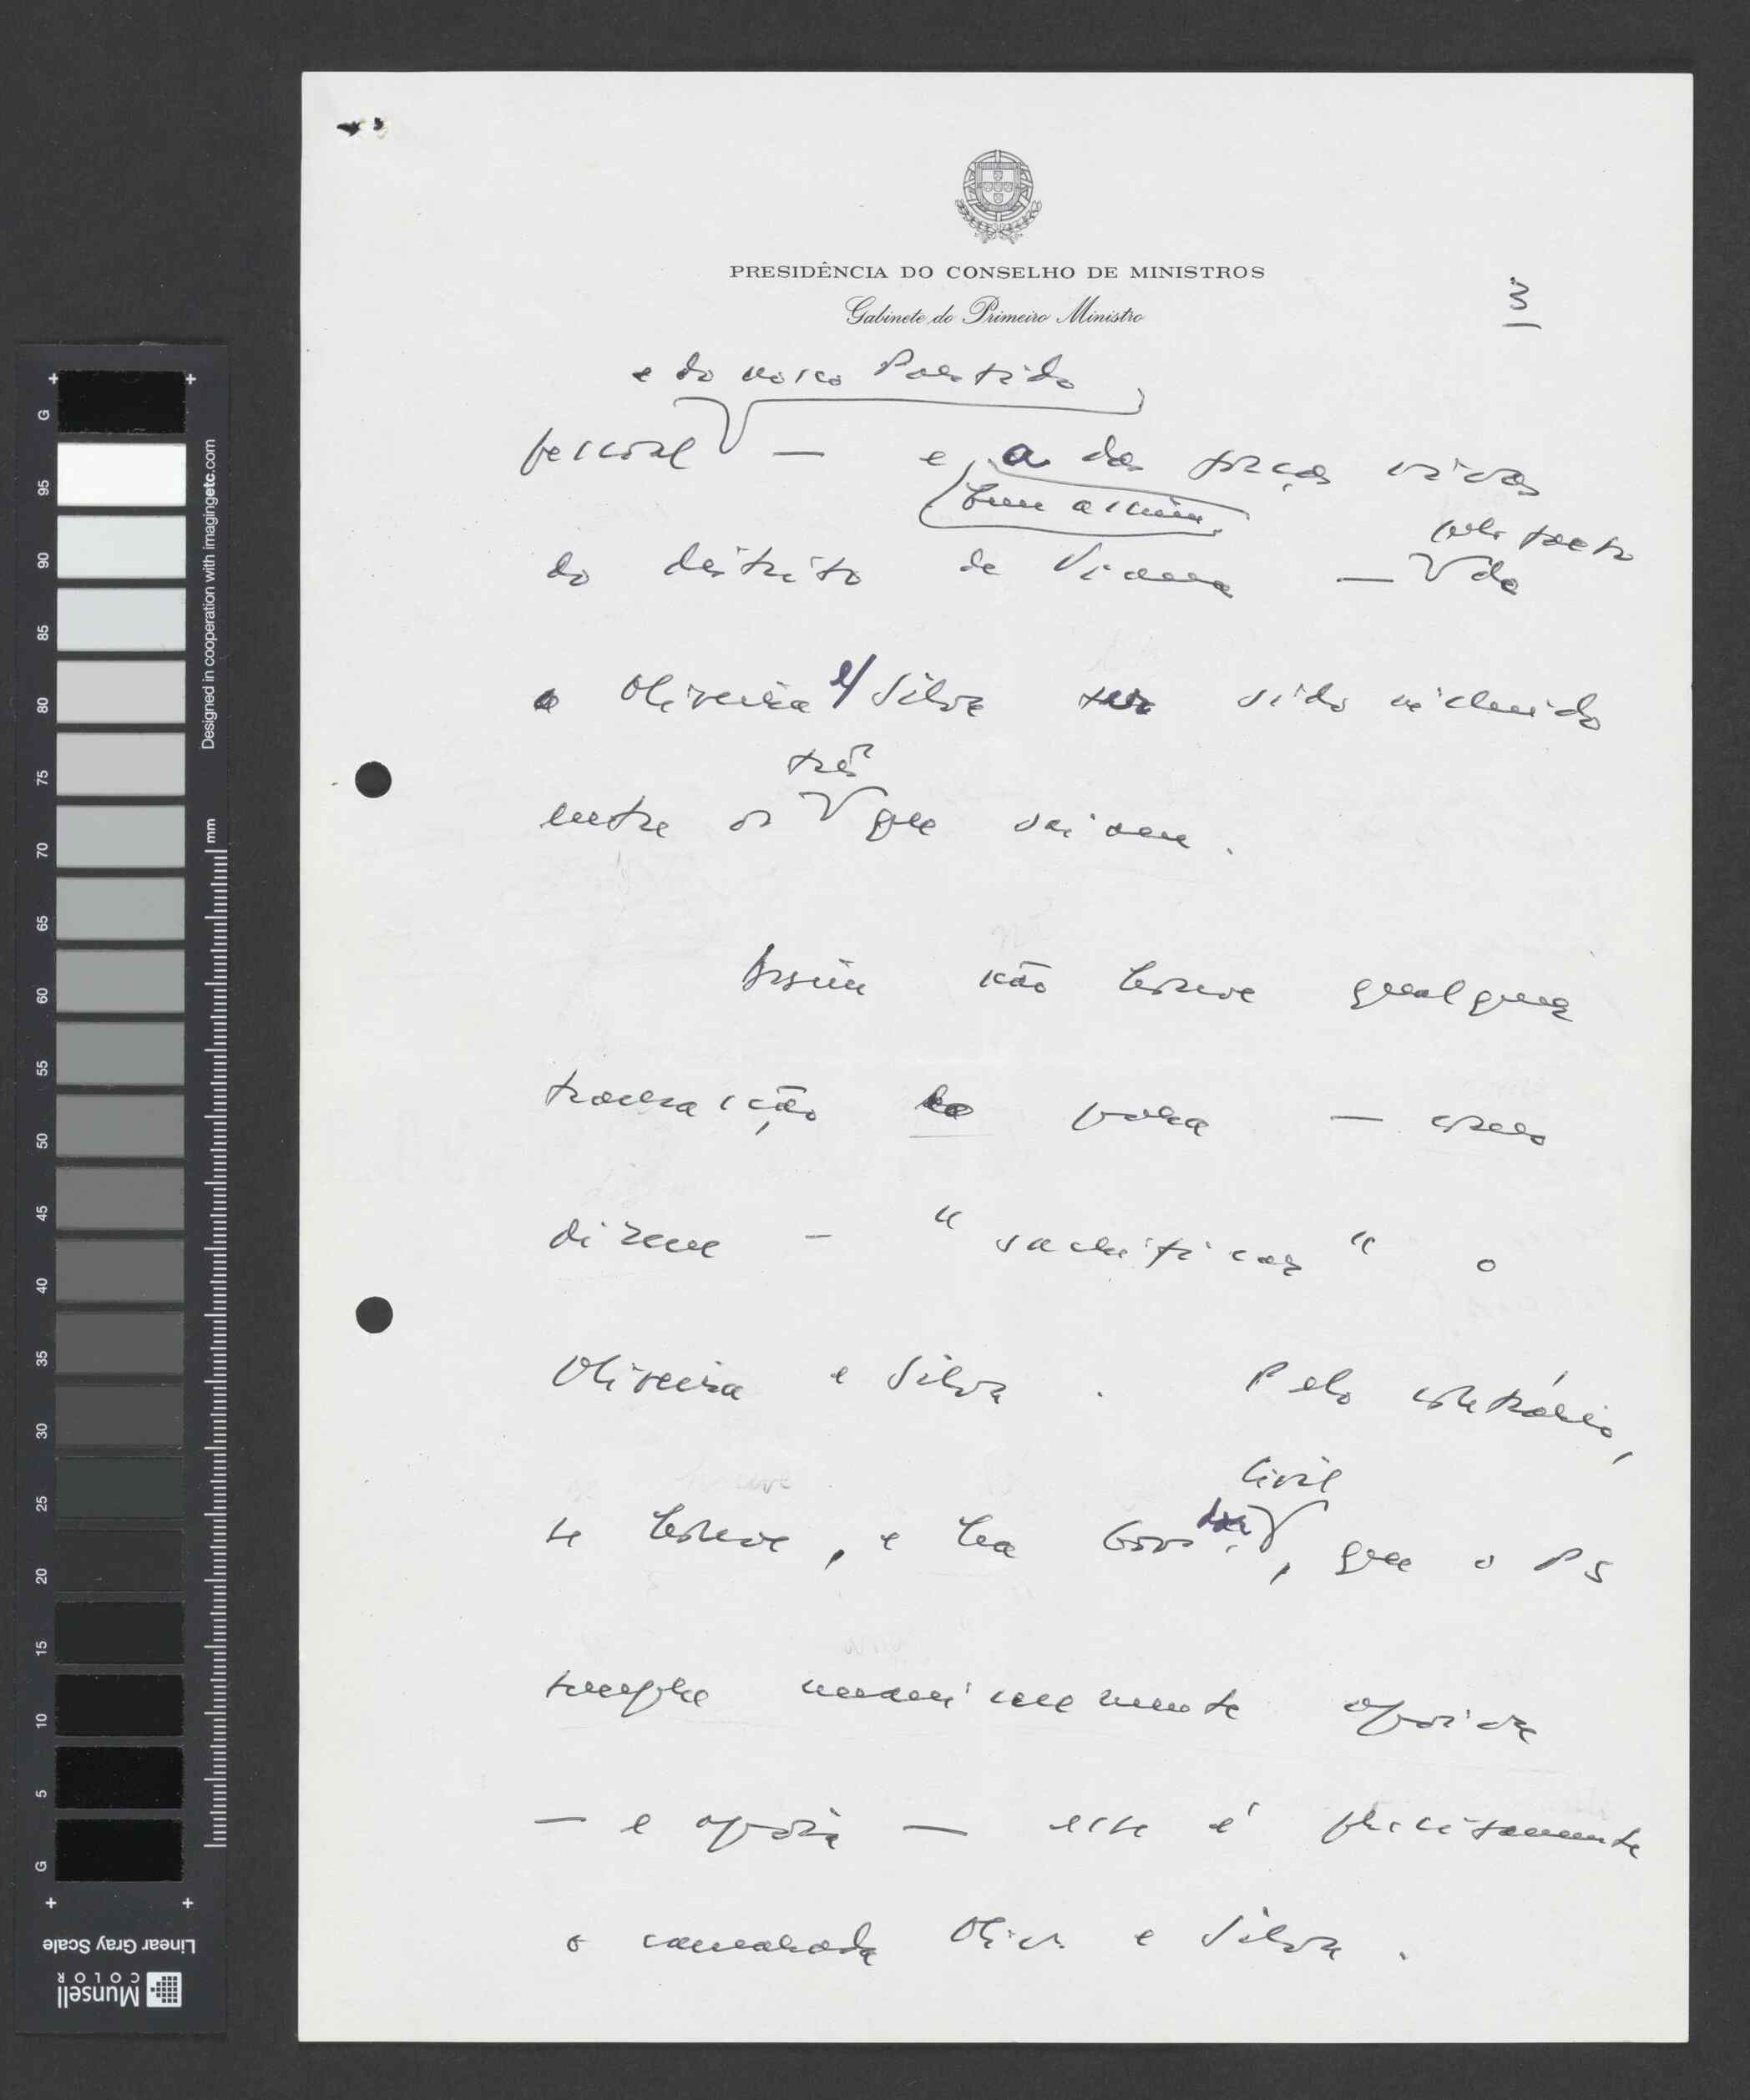 PRESIDÊNCIA DO CONSELHO DE MINISTROS
Gabinete do Primeiro Ministro
3
e do nosso Partido
pessoal — e, a das forças vivas
bem assim,
pelo facto
do distrito de Viana — de
o Oliveira e/ Silva ter sido incluido
três
entre os que saiam.
Assim não houve qualquer
transacção para — como
dizem - "sacrificar" o
Oliveira e Silva. Pelo contrário,
Civil
se houve, e há Gov. , que o PS
sempre unanimemente apoiou
— e apoia — esse é precisamente
o camarada Oliv. e Silva.
G 95 90 85 80 75 70 65 60 55 50 45 40 35 30 25 20 15 10 5 G
Designed in cooperation with imagingetc.com
mm
Linear Gray Scale
Munsell
COLOR